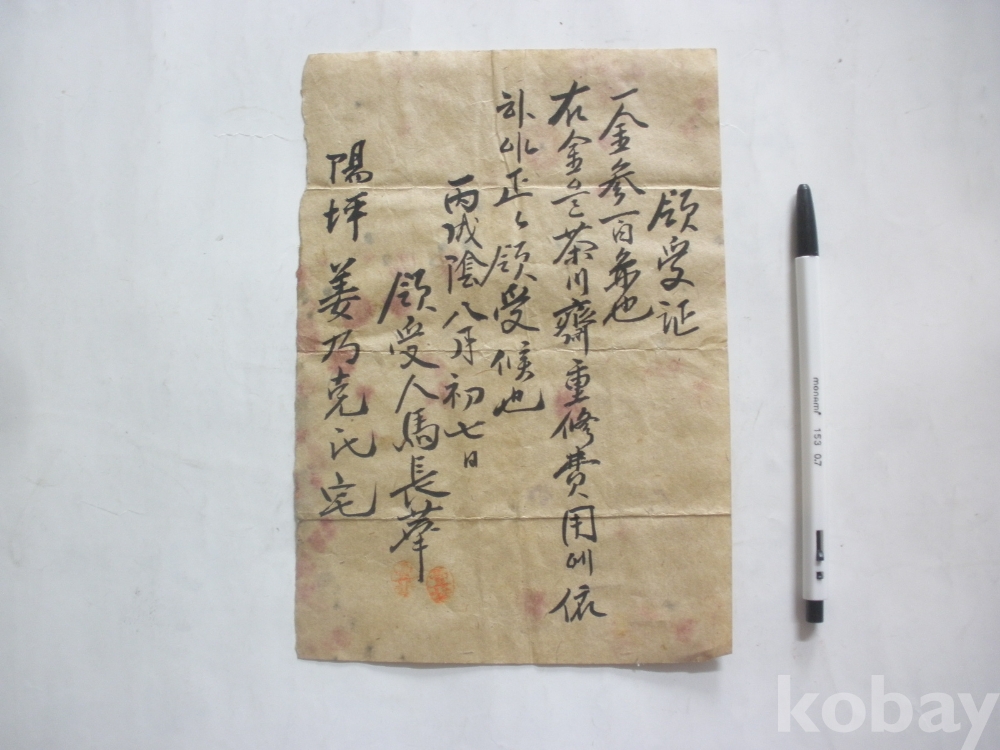 領受証
一金參百也
右金은茶川齋重修費用에依
하야正히領受候也
丙戌陰八月初七日
領受人馬長
陽坪 姜乃克氏宅
monami 153 0.7
kobay